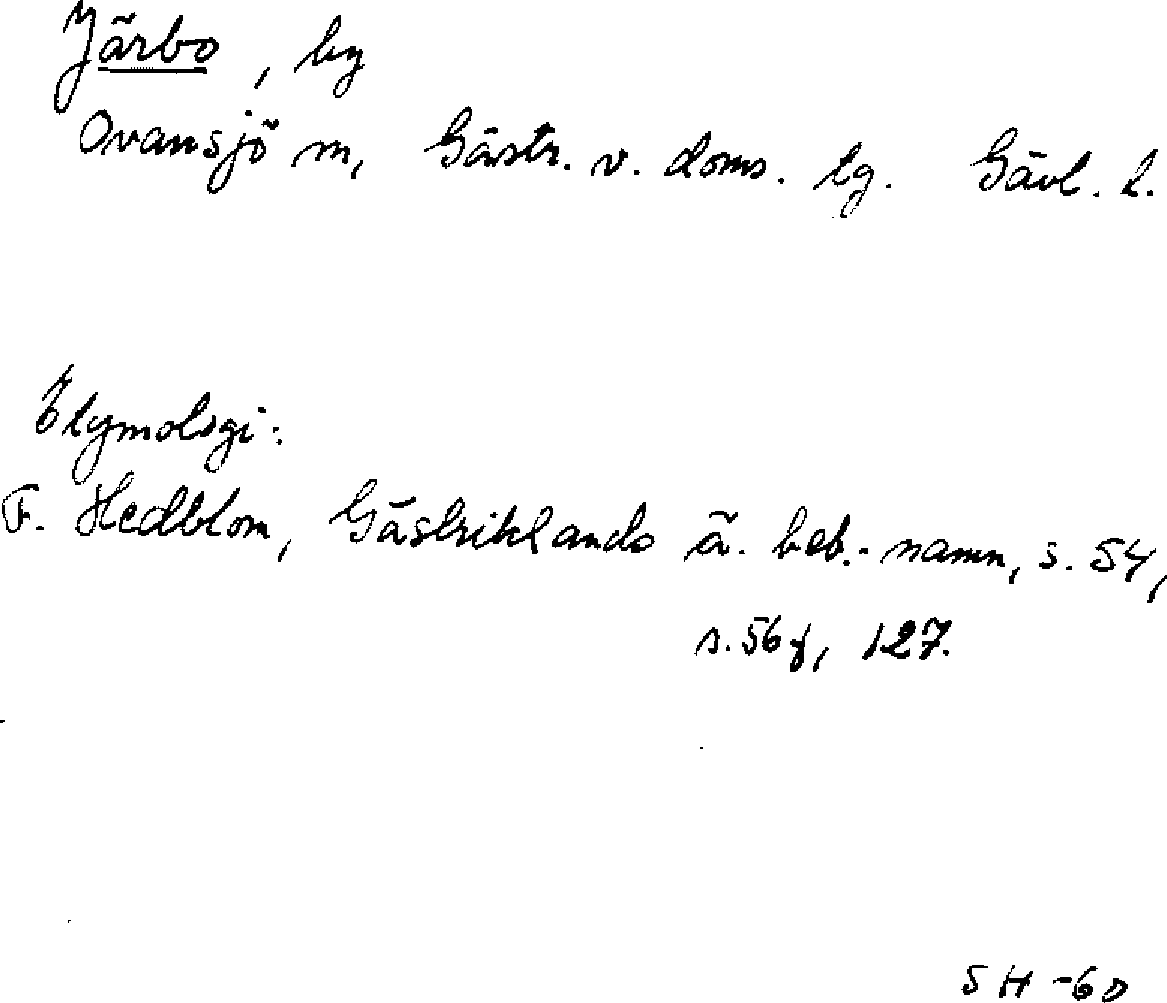 Järbo, by
Ovansjö sn, Gästr. v. doms. tg. Gävl. l.
Etymologi:
F. Hedblom, Gästriklands ä. beb.-namn, s. 54,
s. 56 f, 127.
SH -60